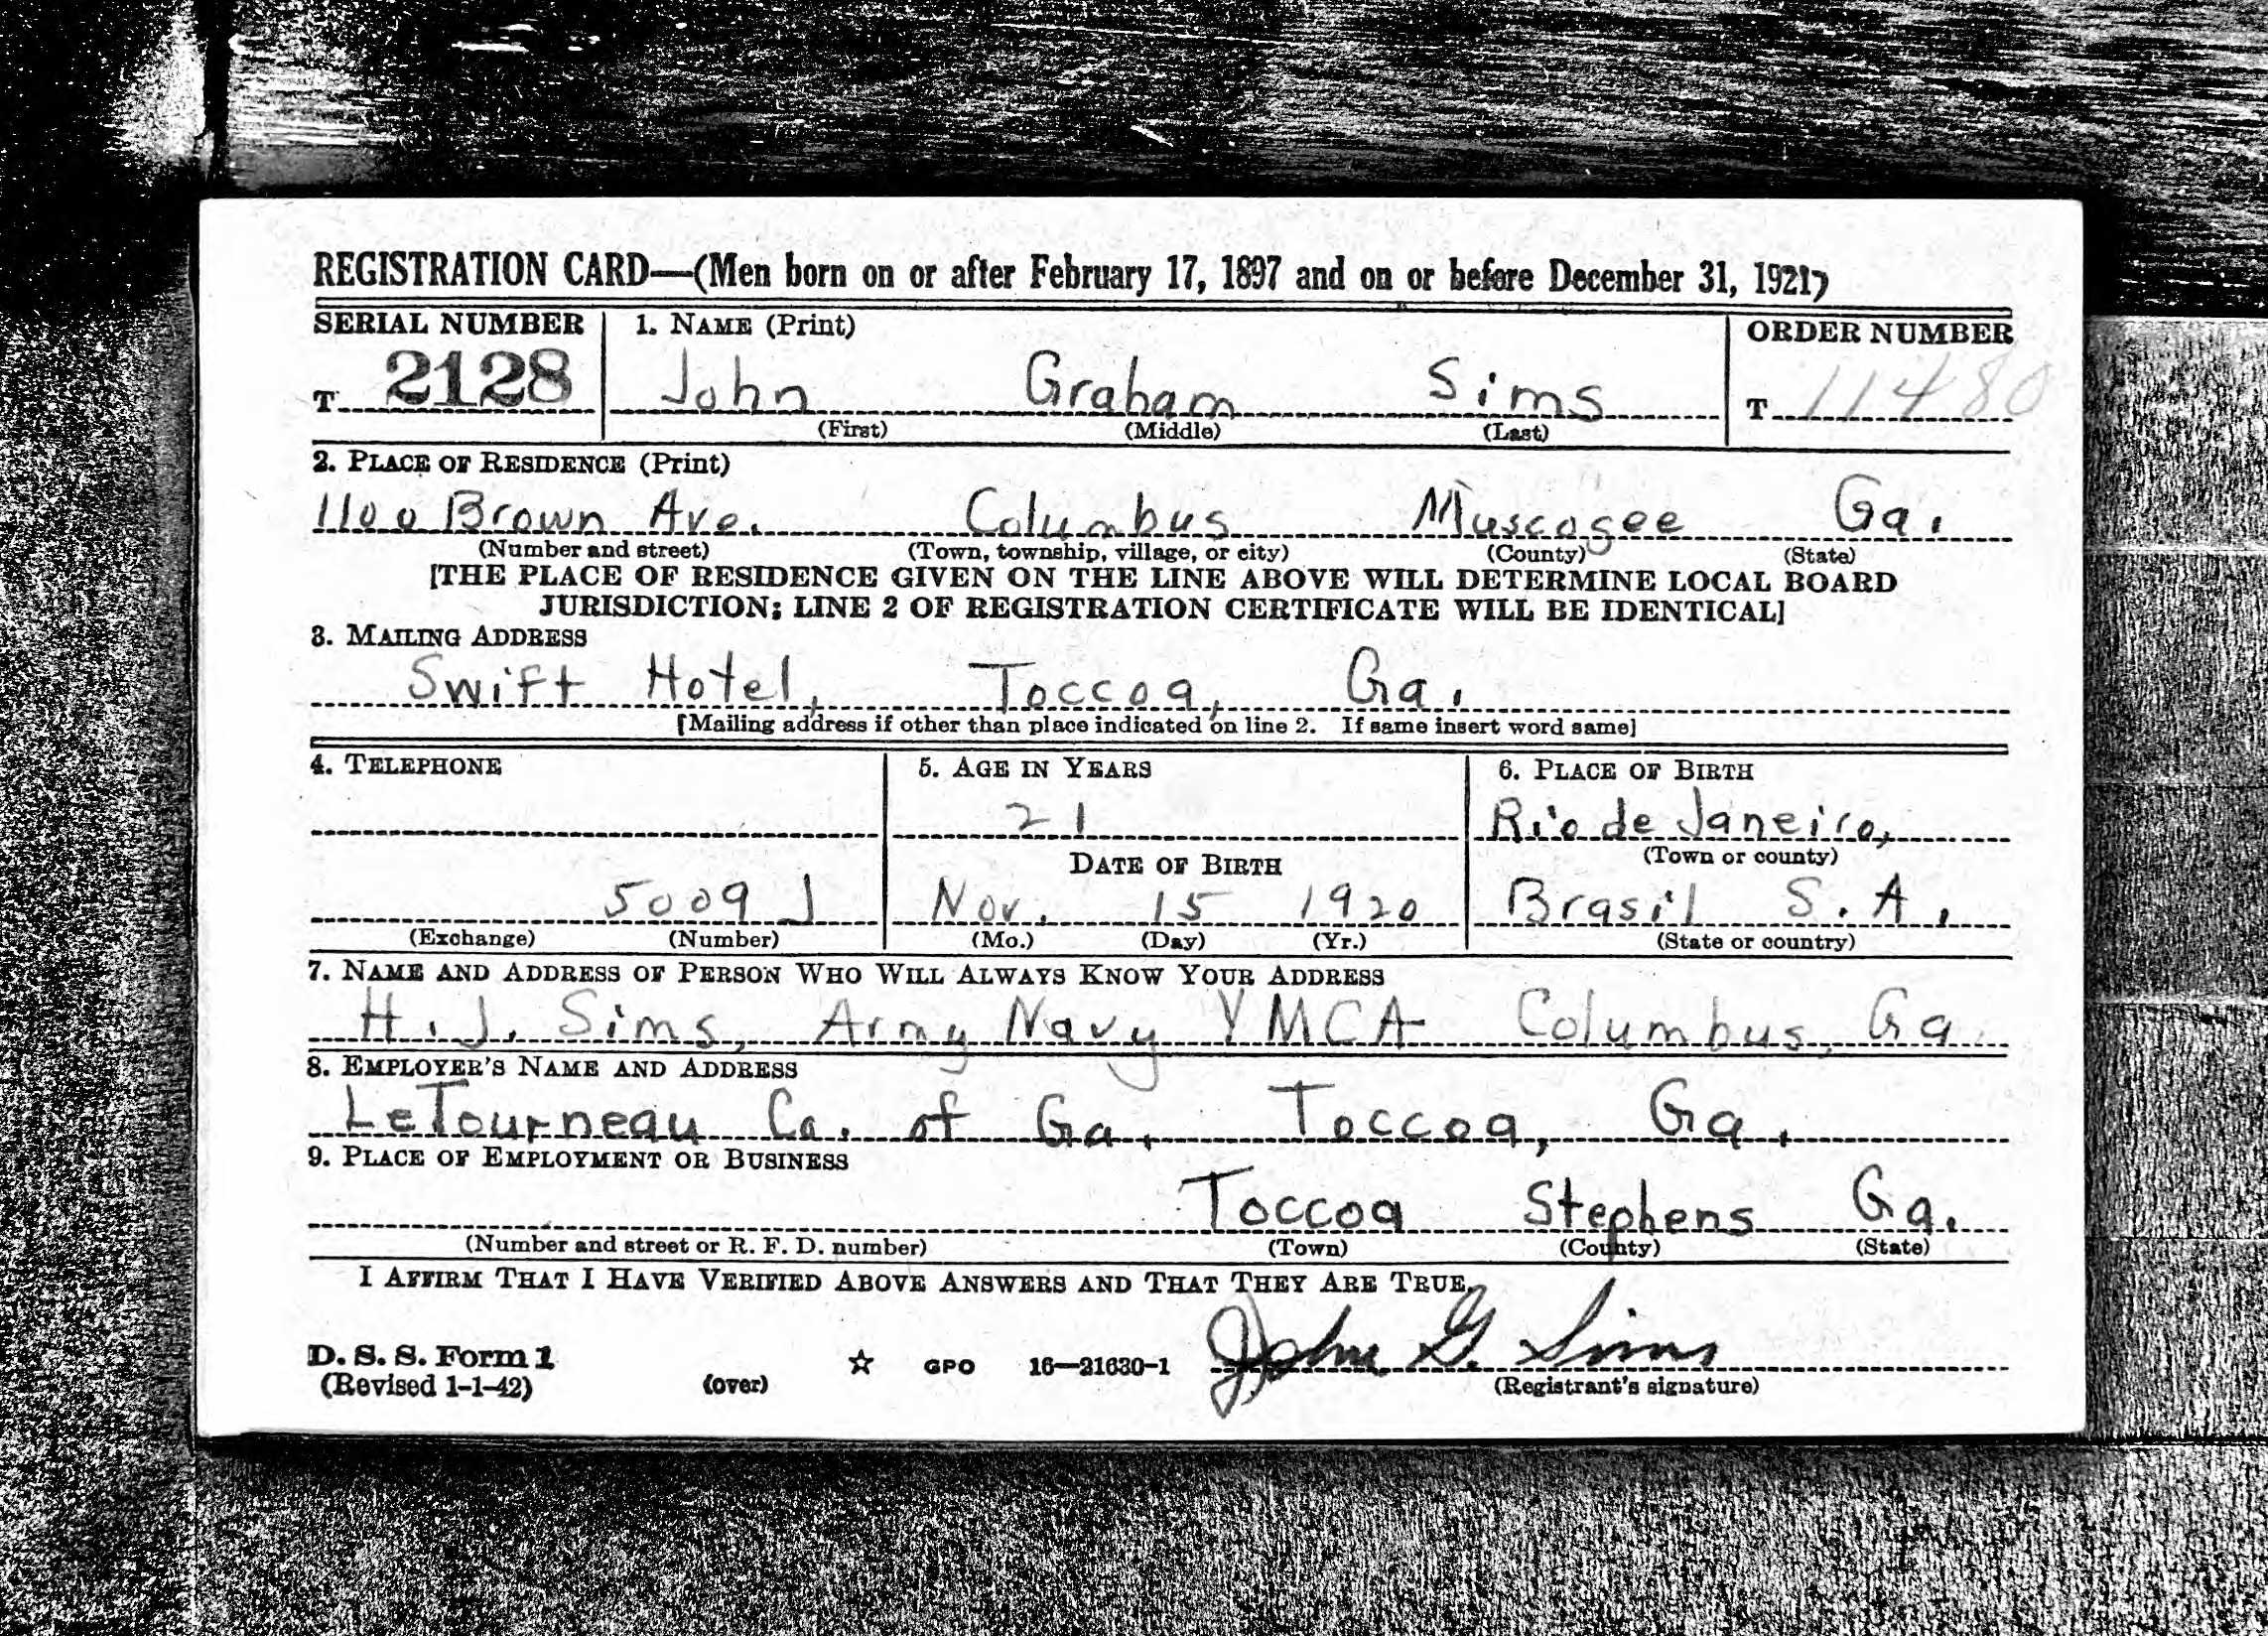 REGISTRATION CARD—(Men born on or after February 17, 1897 and on or before December 31, 1921)
SERIAL NUMBER 1. NAME (Print) ORDER NUMBER
T 2128 John Graham Sims T 11480
(First) (Middle) (Last)
2. PLACE OF RESIDENCE (Print)
1100 Brown Ave. Columbus Muscogee Ga.
(Number and street) (Town, township, village, or city) (County) (State)
[THE PLACE OF RESIDENCE GIVEN ON THE LINE ABOVE WILL DETERMINE LOCAL BOARD
JURISDICTION; LINE 2 OF REGISTRATION CERTIFICATE WILL BE IDENTICAL]
3. MAILING ADDRESS
Swift Hotel, Toccoa, Ga.
[Mailing address if other than place indicated on line 2. If same insert word same]
4. TELEPHONE 5. AGE IN YEARS 6. PLACE OF BIRTH
21 Rio de Janeiro,
DATE OF BIRTH (Town or county)
5009 J Nov. 15 1920 Brasil S. A.
(Exchange) (Number) (Mo.) (Day) (Yr.) (State or country)
7. NAME AND ADDRESS OF PERSON WHO WILL ALWAYS KNOW YOUR ADDRESS
H. J. Sims, Army Navy YMCA Columbus, Ga
8. EMPLOYER'S NAME AND ADDRESS
LeTourneau Co. of Ga. Toccoa, Ga.
9. PLACE OF EMPLOYMENT OR BUSINESS
Toccoa Stephens Ga.
(Number and street or R. F. D. number) (Town) (County) (State)
I AFFIRM THAT I HAVE VERIFIED ABOVE ANSWERS AND THAT THEY ARE TRUE.
D. S. S. Form 1 John G. Sims
(Revised 1-1-42) (over) ☆ GPO 16—21630-1 (Registrant's signature)